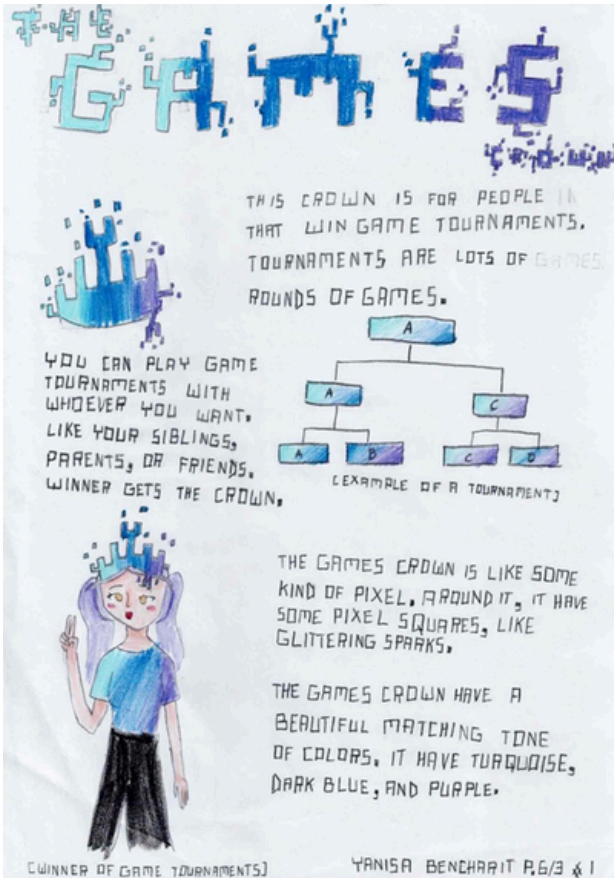 THE
GAMES
CROWN
THIS CROWN IS FOR PEOPLE IN
THAT WIN GAME TOURNAMENTS.
TOURNAMENTS ARE LOTS OF GAMES
ROUNDS OF GAMES.
YOU CAN PLAY GAME
TOURNAMENTS WITH
WHOEVER YOU WANT.
LIKE YOUR SIBLINGS,
PARENTS, OR FRIENDS.
WINNER GETS THE CROWN.
A
A
C
A
B
C
D
[EXAMPLE OF A TOURNAMENT]
THE GAMES CROWN IS LIKE SOME
KIND OF PIXEL. AROUND IT, IT HAVE
SOME PIXEL SQUARES, LIKE
GLITTERING SPARKS.
THE GAMES CROWN HAVE A
BEAUTIFUL MATCHING TONE
OF COLORS. IT HAVE TURQUOISE,
DARK BLUE, AND PURPLE.
[WINNER OF GAME TOURNAMENTS]
YANISA BENCHARIT P.6/3